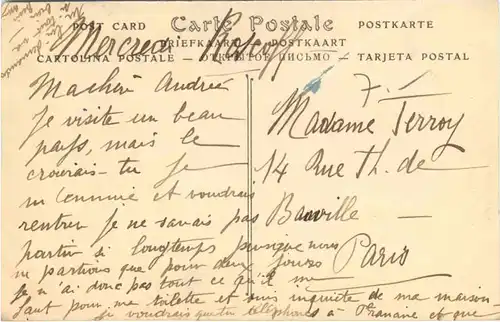 POST CARD Carte Postale POSTKARTE
BRIEFKAART POSTKAART
CARTOLINA POSTALE — ОТКРЫТОЕ ПИСЬМО — TARJETA POSTAL
Mercredi Roscoff
Ma chérie Andrée
Je visite un beau
pays, mais le
croirais-tu je
m'ennuie et voudrais
rentrer je ne savais pas
partir si longtemps puisque nous
ne partions que pour deux jours
je n'ai donc pas tout ce qu'il me
faut pour ma toilette et suis inquiète de ma maison
je voudrais que tu téléphones à et que
7.
Madame Terroy
14 Rue Th. de
Banville
Paris